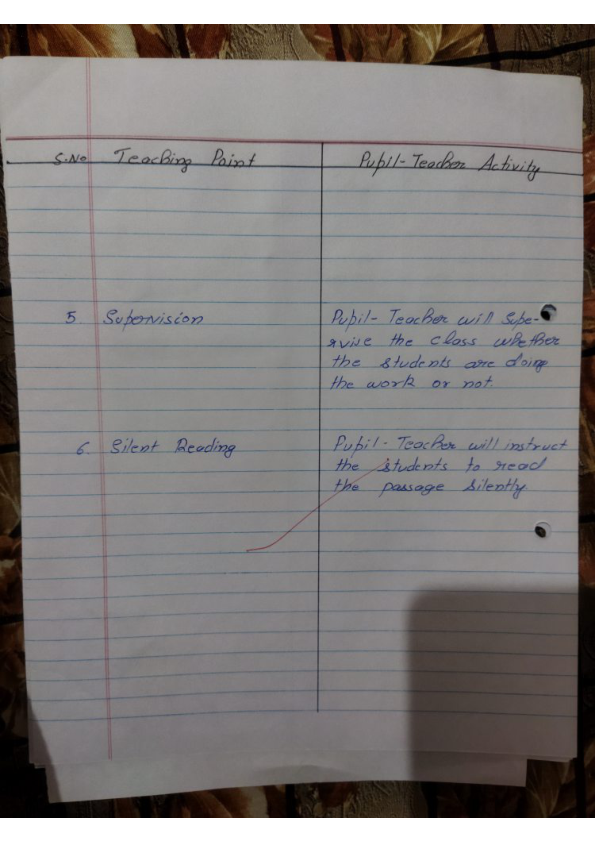 S.No Teaching Point Pupil-Teacher Activity
5. Supervision Pupil-Teacher will supe-
rvise the class whether
the students are doing
the work or not.
6. Silent Reading Pupil-Teacher will instruct
the students to read
the passage silently